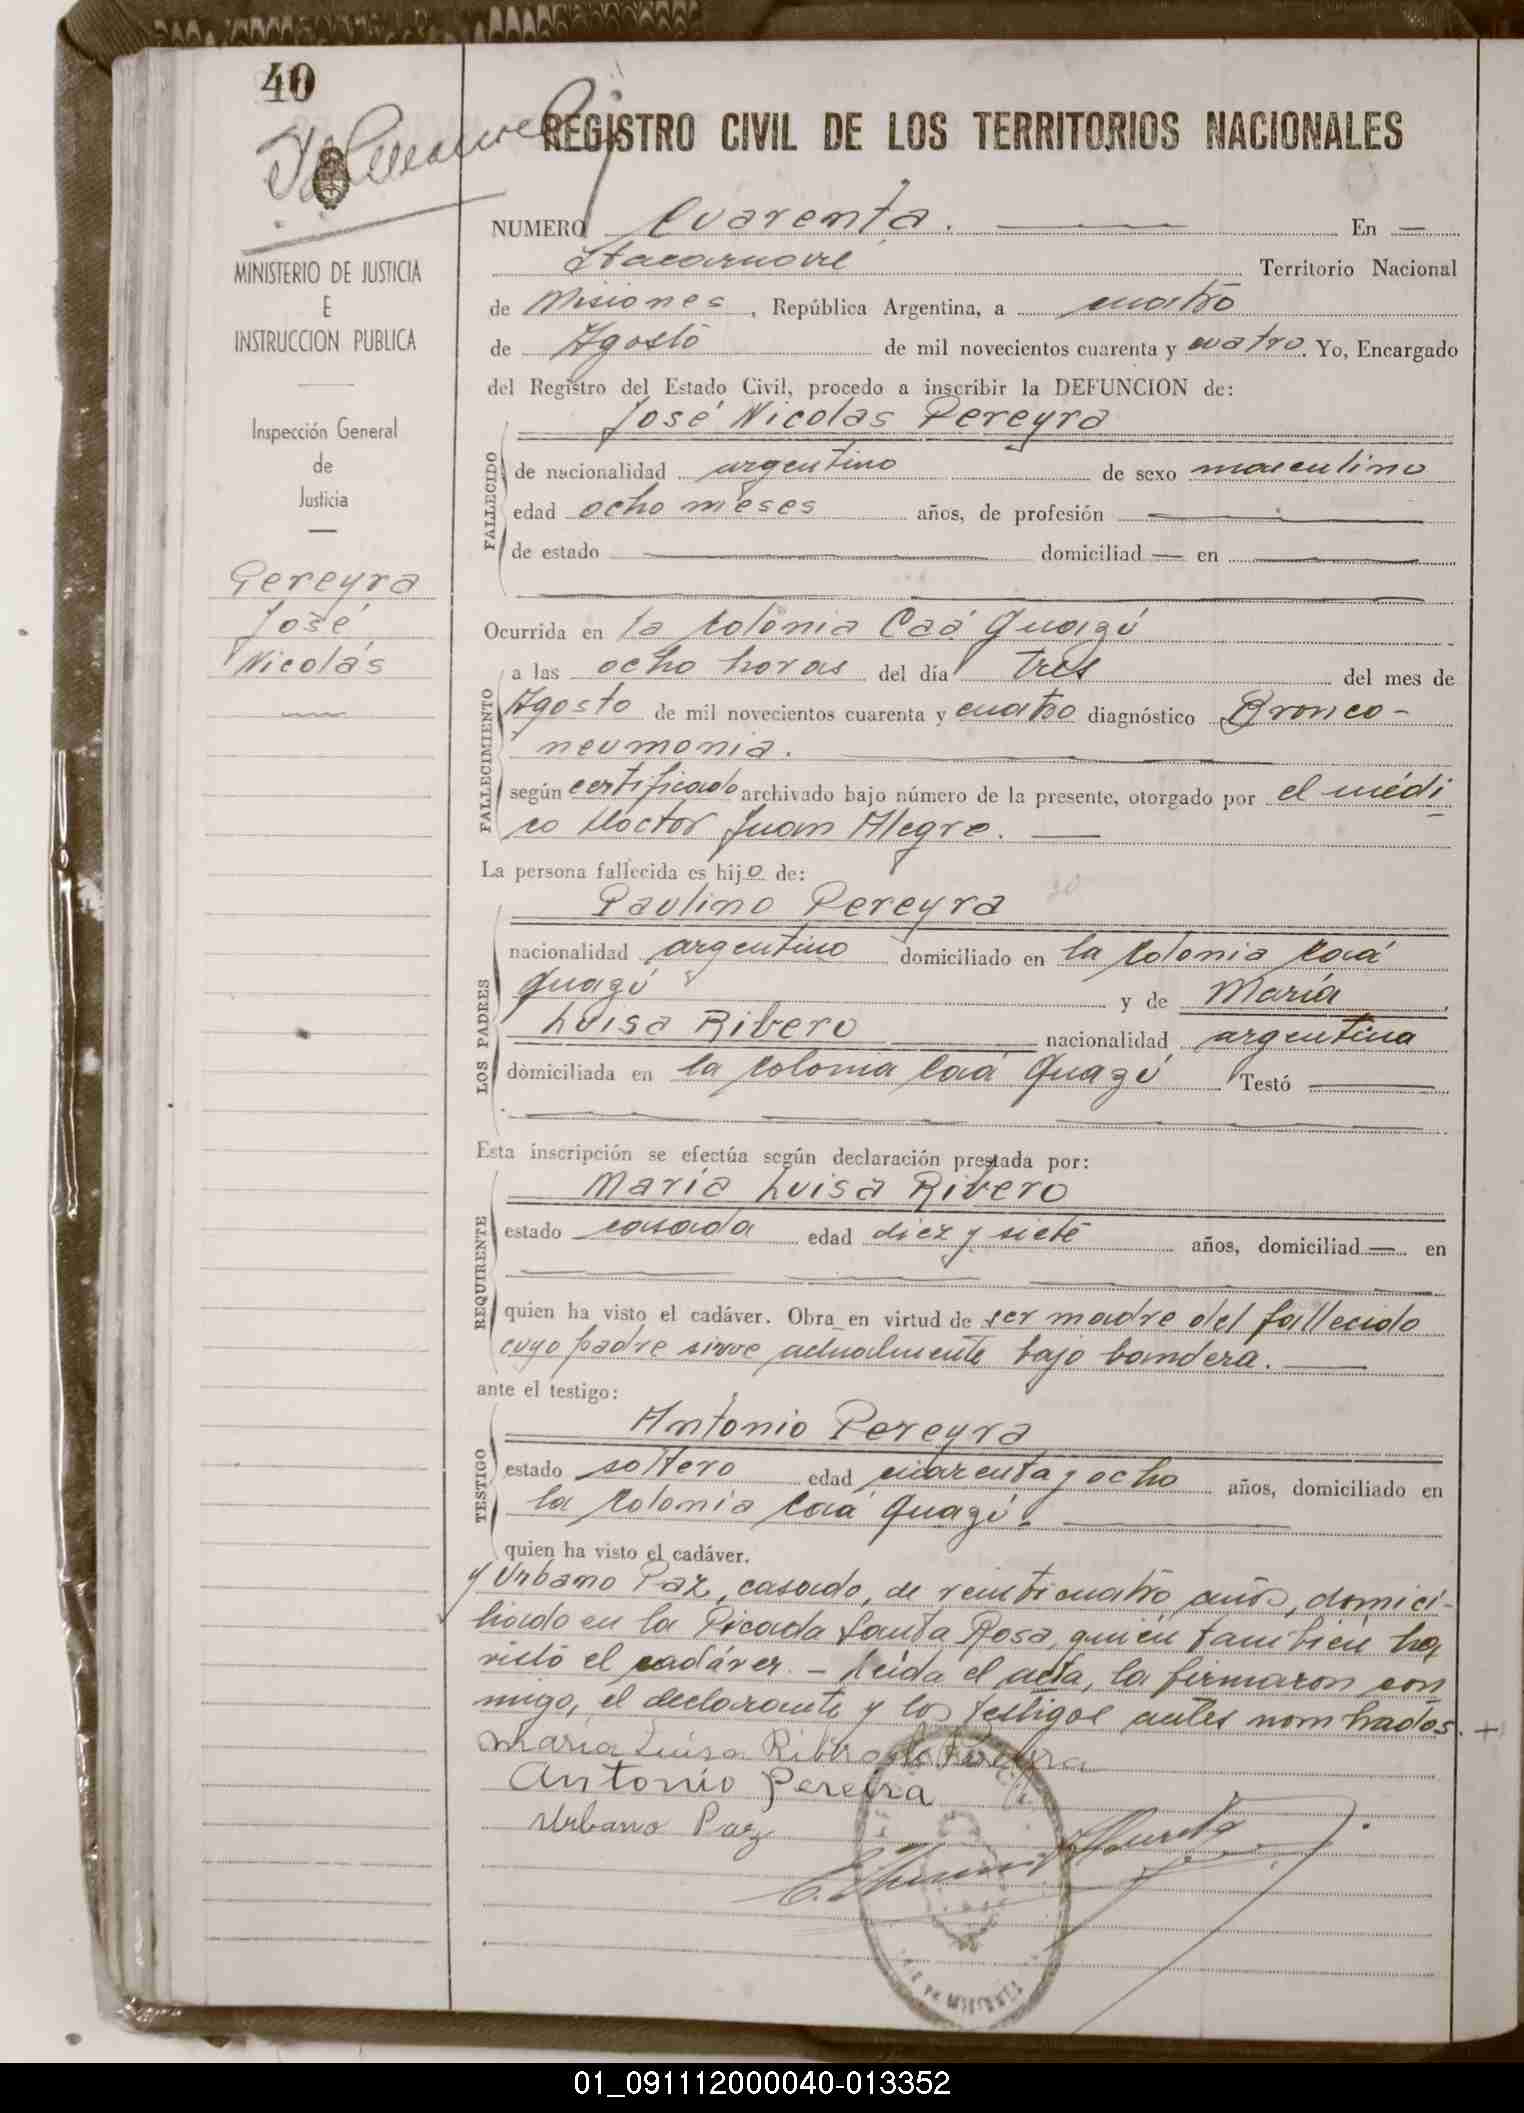 40
REGISTRO CIVIL DE LOS TERRITORIOS NACIONALES
NUMERO Cuarenta. En —
Itacaruaré Territorio Nacional
de Misiones, República Argentina, a cuatro
de Agosto de mil novecientos cuarenta y cuatro. Yo, Encargado
del Registro del Estado Civil, procedo a inscribir la DEFUNCION de:
José Nicolas Pereyra
MINISTERIO DE JUSTICIA
E
INSTRUCCION PUBLICA
Inspección General
de
Justicia
Pereyra
José
Nicolás
FALLECIDO
de nacionalidad argentino de sexo masculino
edad ocho meses años, de profesión —
de estado — domiciliad — en —
Ocurrida en la Colonia Caá Guazú
FALLECIMIENTO
a las ocho horas del día tres del mes de
Agosto de mil novecientos cuarenta y cuatro diagnóstico Bronco-
neumonia.
según certificado archivado bajo número de la presente, otorgado por el médi
co Doctor Juan Alegre. —
La persona fallecida es hijo de:
LOS PADRES
Paulino Pereyra
nacionalidad argentino domiciliado en la Colonia Caá
Guazú y de María
Luisa Ribero nacionalidad argentina
domiciliada en la Colonia Caá Guazú Testó —
Esta inscripción se efectúa según declaración prestada por:
REQUIRENTE
María Luisa Ribero
estado casada edad diez y siete años, domiciliad — en
quien ha visto el cadáver. Obra en virtud de ser madre del fallecido
cuyo padre sirve actualmente bajo bandera. —
ante el testigo:
TESTIGO
Antonio Pereyra
estado soltero edad cuarenta y ocho años, domiciliado en
la Colonia Caá Guazú. —
quien ha visto el cadáver.
y Urbano Paz, casado, de veinticuatro años, domici-
liado en la Picada Santa Rosa, quien también ha
visto el cadáver. — Leída el acta, la firmaron con
migo, el declarante y los testigos antes nombrados. +
María Luisa Ribero de Pereyra
Antonio Pereira
Urbano Paz
01_091112000040-013352